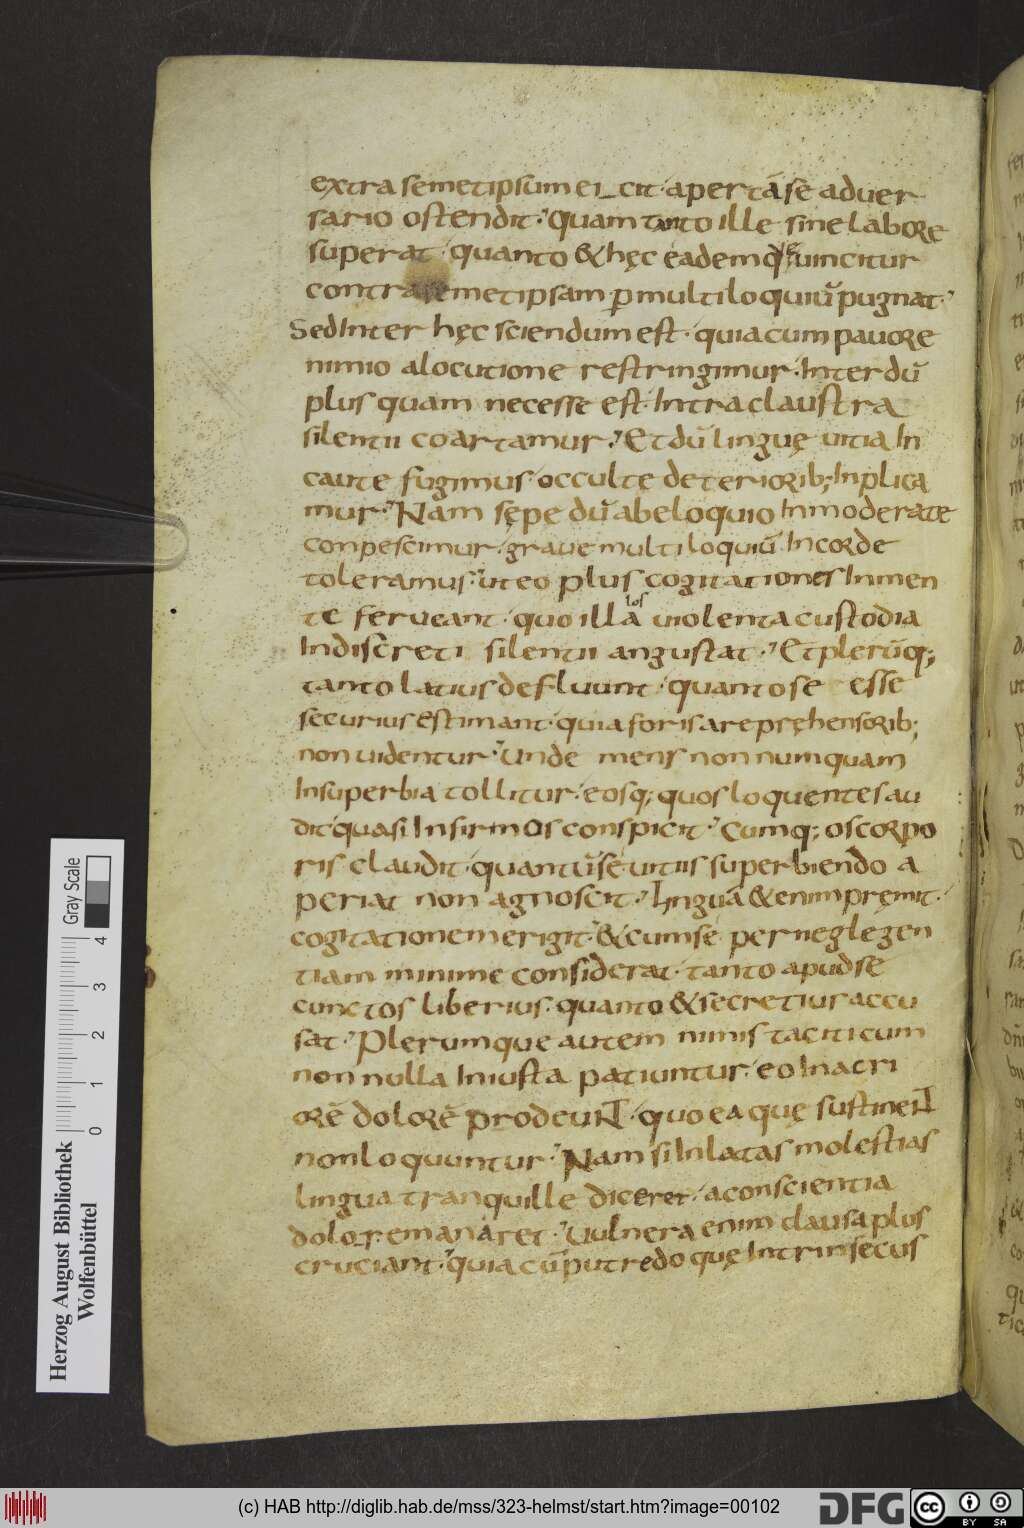 extra semetipsum ei cit· apertāse aduer
sario ostendit· quam tanto ille sine labore
superat· quanto & hęc eadem que uincitur
contra semetipsam ꝑ multiloquiū pugnat·
Sed Inter hęc sciendum est· quia cum pauore
nimio alocutione restringimur· Inter dū
plus quam necesse est· Intra claustra
silentii coartamur· Et dū linguę uitia In
caute fugimus· occulte deteriorib; Inplica
mur· Nam sępe dū abeloquio Inmoderate
conpescimur· graue multiloquiū Incorde
toleramus· uteo plus cogitationes Inmen
te ferueant· quo illalos uiolenta custodia
Indiscreti silentii angustat· Et plerūq;
tanto latius defluunt· quanto se esse
securius estimant· quia foris arepręhensorib;
non uidentur· Unde mens non numquam
Insuperbia tollitur· eosq; quos loquentes au
dit quasi Insirmos conspicit· Cumq; os corpo
ris claudit· quantū se uitiis superbiendo a
periat non agnoscit· Linguā & enim pręmit·
cogitationem erigit· & cum se per neglegen
tiam minime considerat· tanto apud se
cunctos liberius· quanto & secretius accu
sat· Plerumque autem nimis taciti cum
non nulla Iniusta patiuntur· eo Inacri
orē dolorē prodeunt· quo ea quę sustinent
non loquuntur· Nam si Inlatas molestias
lingua tranquille diceret· aconscientia
dolor emanaret· Uulnera enim clausa plus
cruciant· quia cū putredo quę Intrinsecus
Gray Scale
0 1 2 3 4
Herzog August Bibliothek
Wolfenbüttel
(c) HAB http://diglib.hab.de/mss/323-helmst/start.htm?image=00102
DFG
cc BY SA